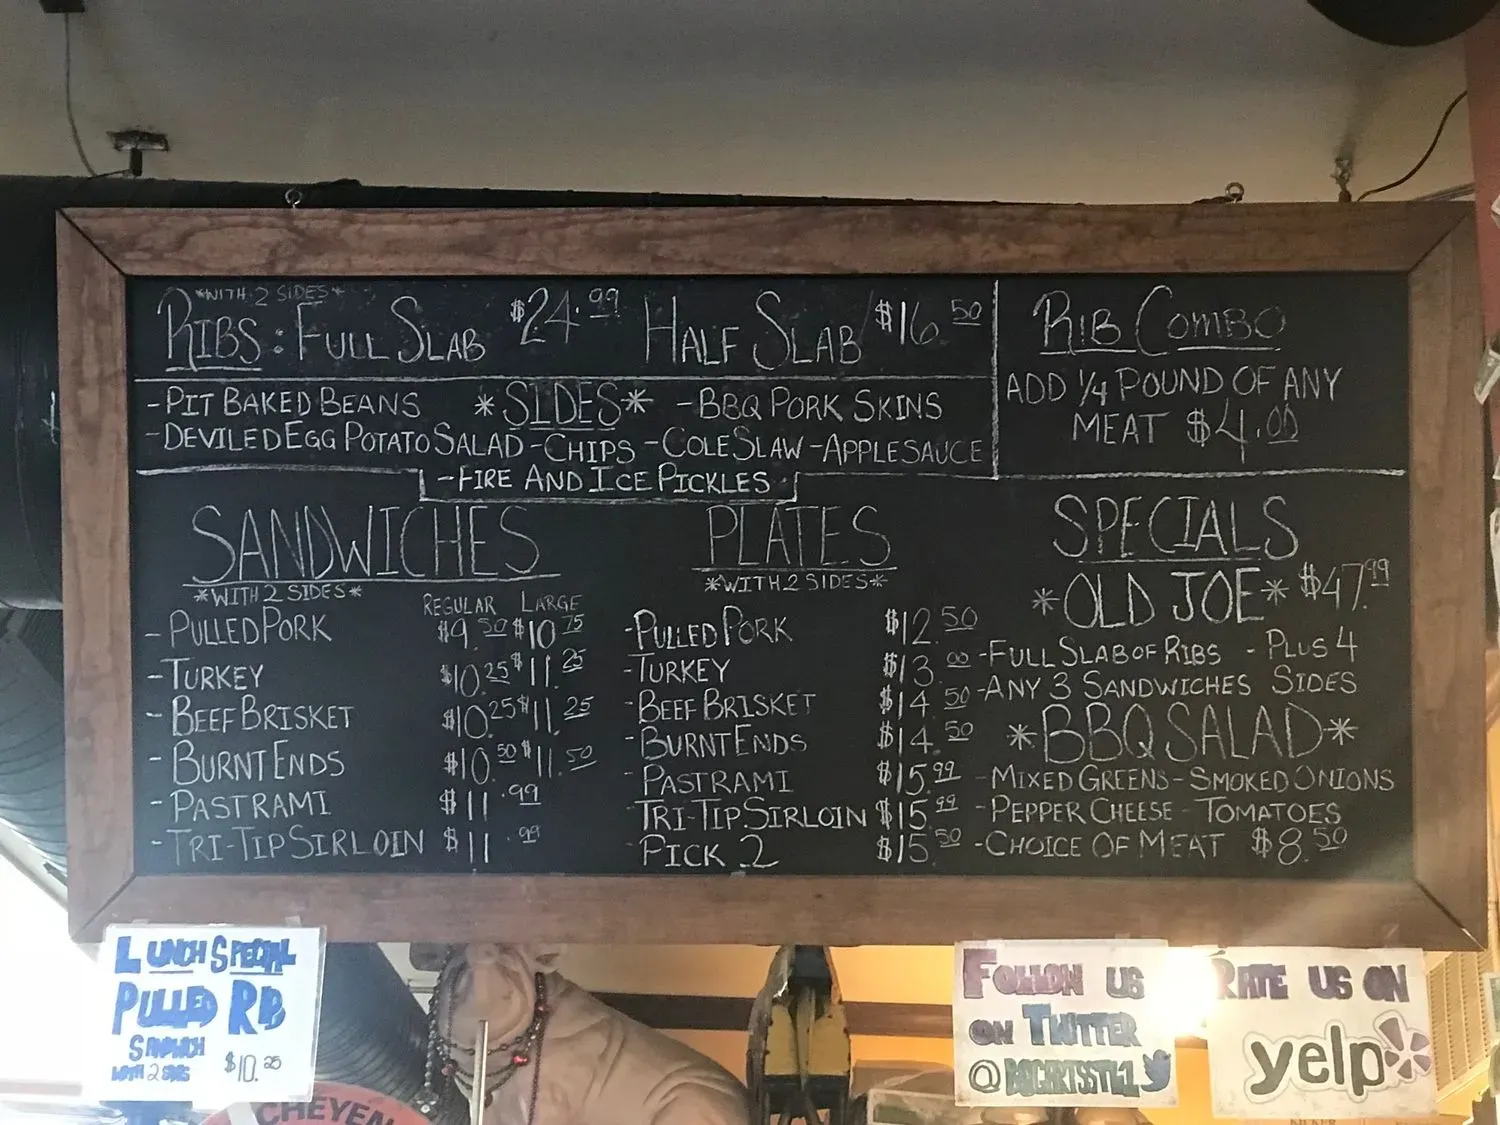 *WITH 2 SIDES*
RIBS: FULL SLAB $24.99 HALF SLAB $16.50
-PIT BAKED BEANS *SIDES* -BBQ PORK SKINS
-DEVILED EGG POTATO SALAD -CHIPS -COLE SLAW -APPLESAUCE
-FIRE AND ICE PICKLES
RIB COMBO
ADD 1/4 POUND OF ANY
MEAT $4.00
SANDWICHES
*WITH 2 SIDES*
REGULAR LARGE
-PULLED PORK $9.50 $10.75
-TURKEY $10.25 $11.25
-BEEF BRISKET $10.25 $11.25
-BURNT ENDS $10.50 $11.50
-PASTRAMI $11.99
-TRI-TIP SIRLOIN $11.99
PLATES
*WITH 2 SIDES*
-PULLED PORK $12.50
-TURKEY $13.00
-BEEF BRISKET $14.50
-BURNT ENDS $14.50
-PASTRAMI $15.99
-TRI-TIP SIRLOIN $15.99
-PICK 2 $15.50
SPECIALS
*OLD JOE* $47.99
-FULL SLAB OF RIBS -PLUS 4
-ANY 3 SANDWICHES SIDES
*BBQ SALAD*
-MIXED GREENS -SMOKED ONIONS
-PEPPER CHEESE -TOMATOES
-CHOICE OF MEAT $8.50
LUNCH SPECIAL
PULLED RIB
SANDWICH
WITH 2 SIDES $10.25
CHEYEN
FOLLOW US
ON TWITTER
RATE US ON
yelp